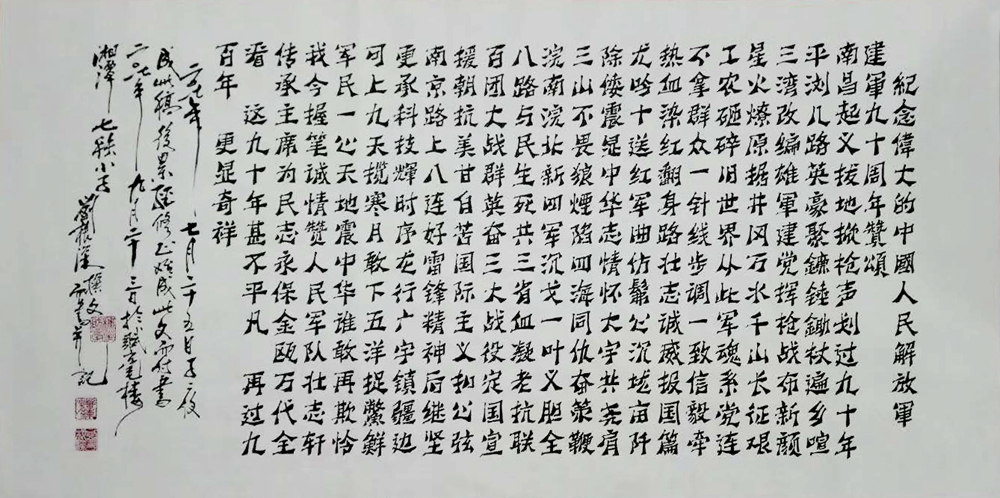 紀念偉大的中國人民解放軍
建軍九十周年贊頌
南昌起义拔地枞枪声划过九十年
平浏几路英豪聚鐮錘鋤杖遍乡喧
三湾改编雄軍建党挥枪战布新顏
星火燎原據井冈万水千山长征艰
工农砸碎旧世界从此军魂系党连
不拿群众一针线步调一致信毅牵
热血染红翻身路壮志诚感报国篇
尤吟十送红军曲仿髴公沉垅亩阡
除倭震显中华志情怀大宇共尧肩
三山不畏狼煙陷四海同仇奋策鞭
浣南浣北新四军沉戈一叶义胆全
八路与民生死共三省血凝老抗联
百团大战群英奋三大战役定国宣
援朝抗美甘自苦国际主义扣公弦
南京路上八连好雷锋精神后继坚
更承科技輝时序龙行广宇鎮疆边
可上九天揽寒月敢下五洋捉鱉鲜
军民一公天地震中华谁敢再欺怜
我今握笔诚情赞人民军队壮志轩
传承主席为民志永保金瓯万代全
看 这九十年甚不平凡 再过九
百年 更显奇祥
二〇一七年 七月二十五日子夜
成此稿後累經修正始成此文 書
二〇一七年 九月二十三日於 楼
湘潭 七 小子 劉 撰文 記